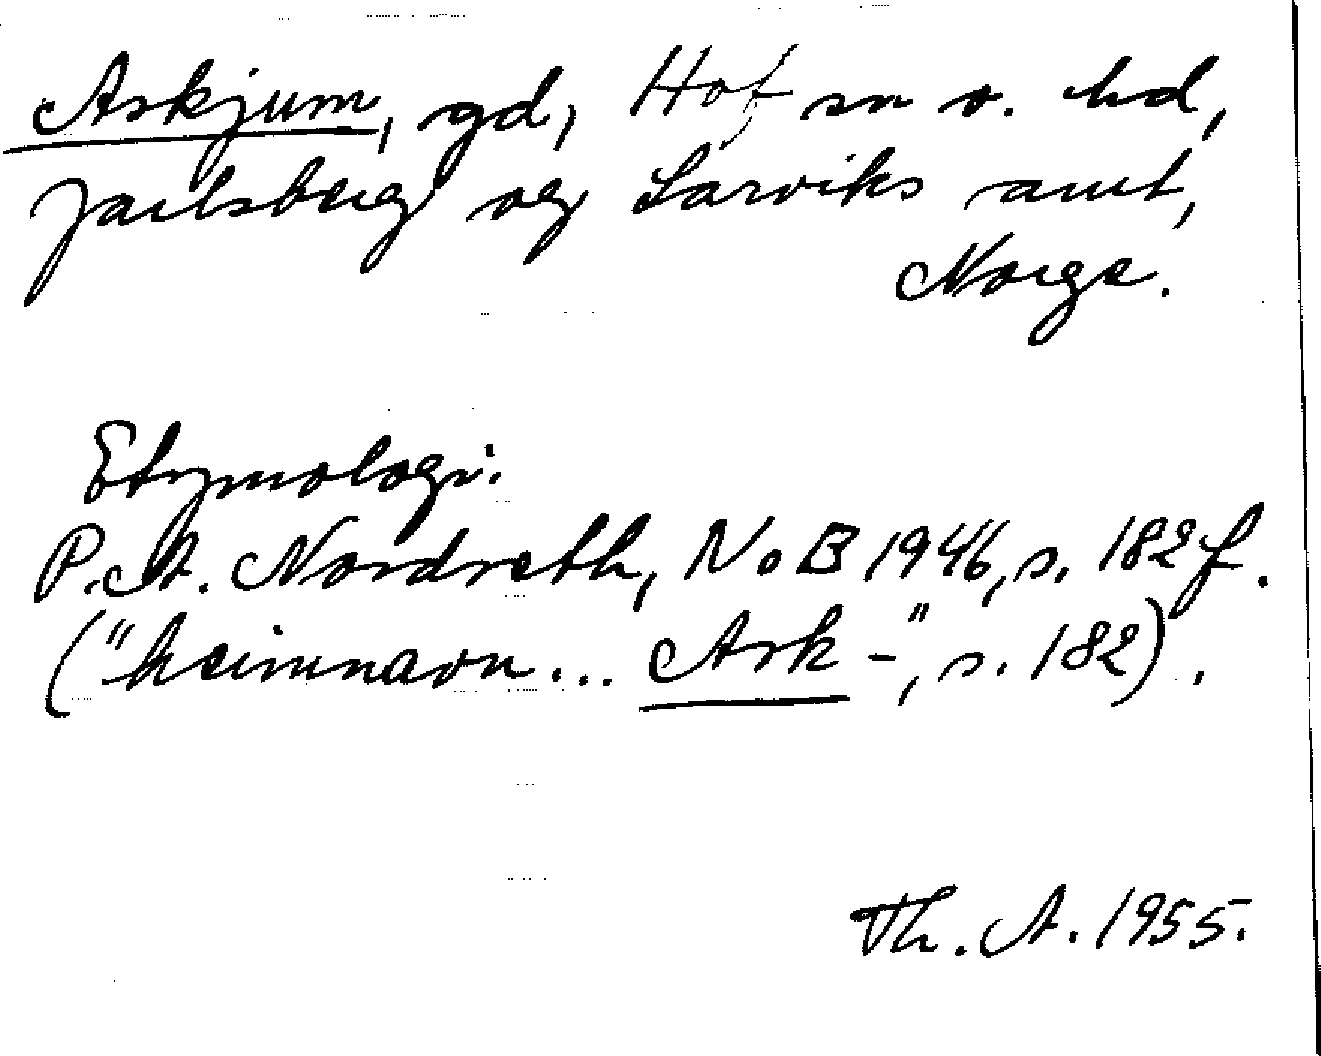 Askjum, gd, Hof sn o. hd,
Jarlsberg og Larviks amt,
Norge.
Etymologi.
P. A. Nordseth, NoB 1946, s. 182 f.
("heimnavn... Ask-", s. 182).
Th. A. 1955.